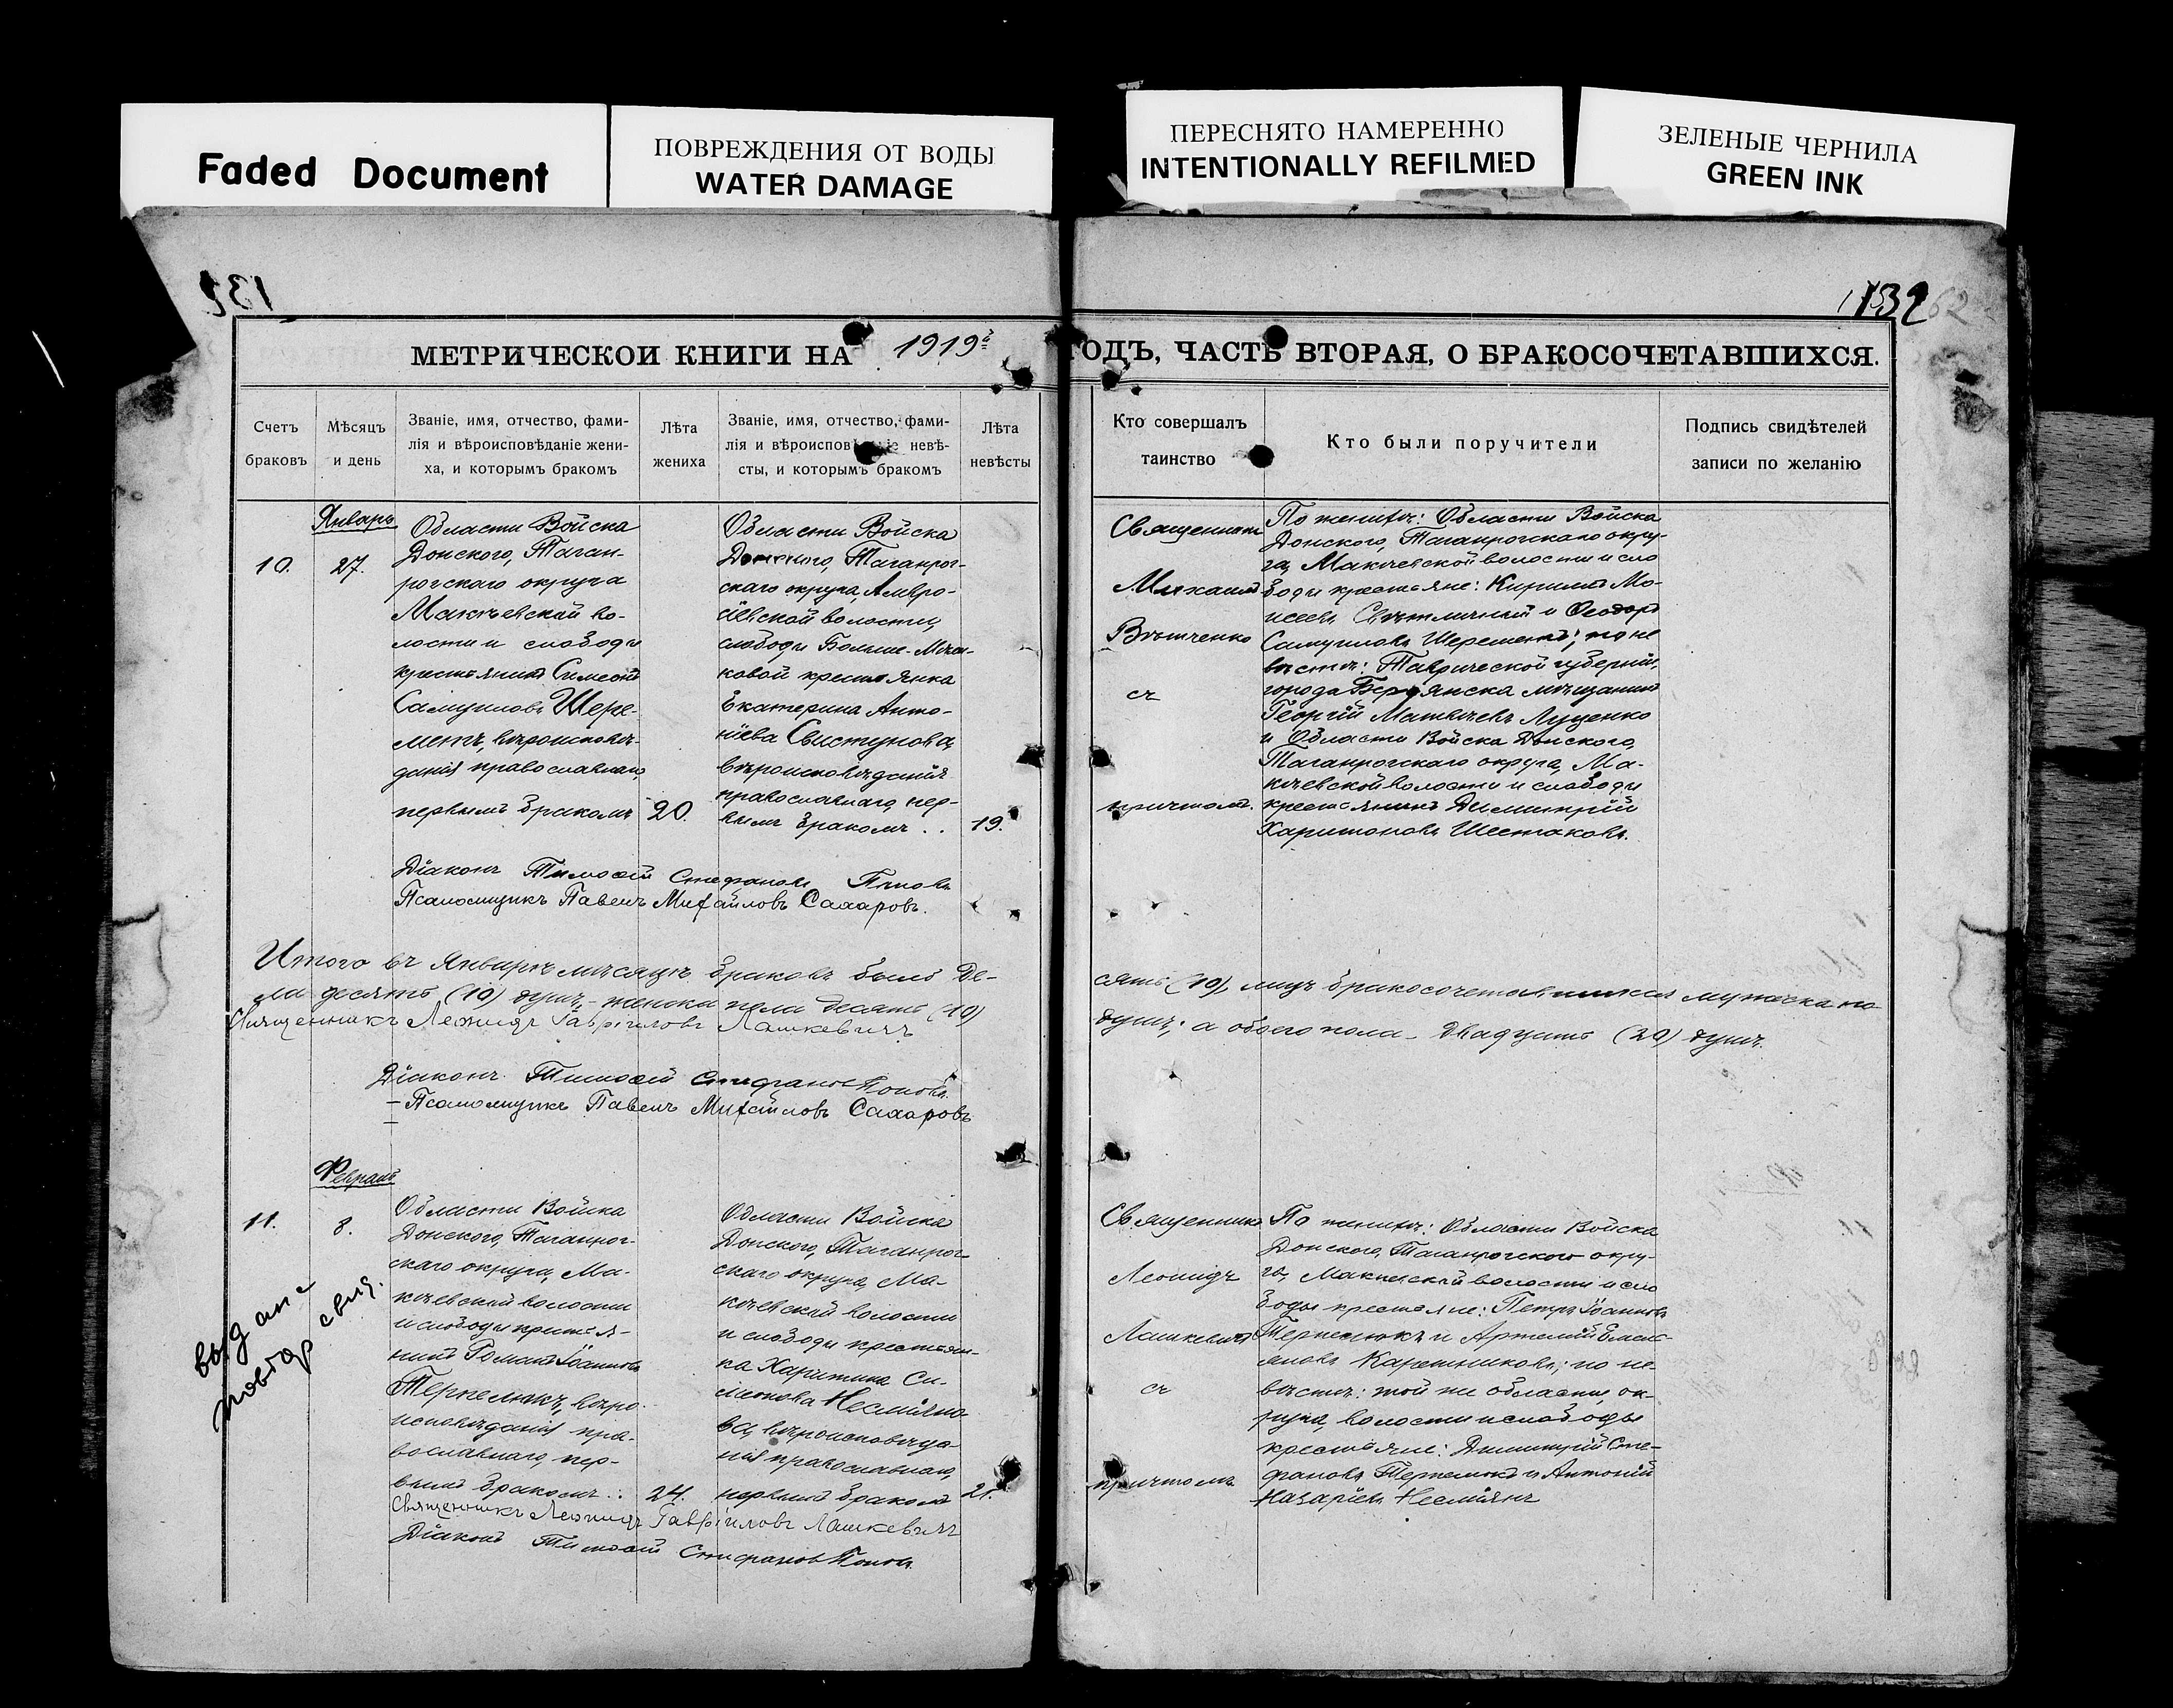 Faded Document
ПОВРЕЖДЕНИЯ ОТ ВОДЫ
WATER DAMAGE
ПЕРЕСНЯТО НАМЕРЕННО
INTENTIONALLY REFILMED
ЗЕЛЕНЫЕ ЧЕРНИЛА
GREEN INK
132
МЕТРИЧЕСКОИ КНИГИ НА 1919 ГОДЪ, ЧАСТЬ ВТОРАЯ, О БРАКОСОЧЕТАВШИХСЯ.
Счетъ
браковъ
Мѣсяцъ
и день
Званіе, имя, отчество, фами-
лія и вѣроисповѣданіе жени-
ха, и которымъ бракомъ
Лѣта
жениха
Званіе, имя, отчество, фами-
лія и вѣроисповѣданіе невѣ-
сты, и которымъ бракомъ
Лѣта
невѣсты
Кто совершалъ
таинство
Кто были поручители
Подпись свидѣтелей
записи по желанію
10.
Январь
27.
Области Войска
Донского, Таган-
рогскаго округа
Макѣевской во-
лости и слободы
крестьянинъ Симеонъ
Самуиловъ Шере-
метъ, вѣроисповѣ-
данія православнаго,
первымъ бракомъ
20.
Области Войска
Донского, Таганрог-
скаго округа, Амвро-
сіевской волости,
слободы Больше-Мѣш-
ковой крестьянка
Екатерина Анто-
ніева Свистунова,
вѣроисповѣданія
православнаго, пер-
вымъ бракомъ . .
19.
Священникъ
Михаилъ
Вѣтченко
съ
причтомъ.
По женихѣ: Области Войска
Донского, Таганрогскаго окру-
га, Макѣевской волости и сло
боды крестьяне: Кириллъ Мо-
исеевъ Свѣтличный и Феодоръ
Самуиловъ Шереметъ; по не
вѣстѣ: Таврической губерніи,
города Бердянска мѣщанинъ
Георгій Матвѣевъ Луценко
и Области Войска Донского,
Таганрогскаго округа, Ма-
кѣевской волости и слободы
крестьянинъ Димитрій
Харитоновъ Шестаковъ.
Діаконъ Тимоѳей Стефановъ Поповъ
Псаломщикъ Павелъ Михайловъ Сахаровъ.
Итого въ Январѣ мѣсяцѣ браковъ было де-
сять (10), лицъ бракосочетавшихся мужеска по
ла десять (10) душъ,- женска пола десять (10)
душъ; а обоего пола - двадцать (20) душъ.
Священникъ Леонидъ Гавріиловъ Лашкевичъ
Діаконъ Тимоѳей Стефановъ Поповъ.
- Псаломщикъ Павелъ Михайловъ Сахаровъ
11.
Февраль
8.
Области Войска
Донского, Таганрог-
скаго округа, Ма-
кѣевской волости
и слободы крестья-
нинъ Романъ Іоанновъ
Терпелюкъ, вѣро-
исповѣданія пра-
вославнаго, пер-
вымъ бракомъ . .
24.
Области Войска
Донского, Таганрог
скаго округа, Ма-
кѣевской волости
и слободы крестьян-
ка Харитина Си-
меонова Несміяно-
ва, вѣроисповѣда-
нія православнаго,
первымъ бракомъ
21.
Священникъ
Леонидъ
Лашкевичъ
съ
причтомъ
По женихѣ: Области Войска
Донского, Таганрогскаго окру-
га, Макѣевской волости и сло
боды крестьяне: Петръ Іоанновъ
Терпелюкъ и Артемій Емель-
яновъ Каретниковъ; по не
вѣстѣ: той же области, ок-
руга, волости и слободы
крестьяне: Димитрій Сте-
фановъ Терпелюкъ и Антоній
Назаріевъ Несміянъ
Священникъ Леонидъ Гавріиловъ Лашкевичъ
Діаконъ Тимоѳей Стефановъ Поповъ.
выдано
повтор свид.